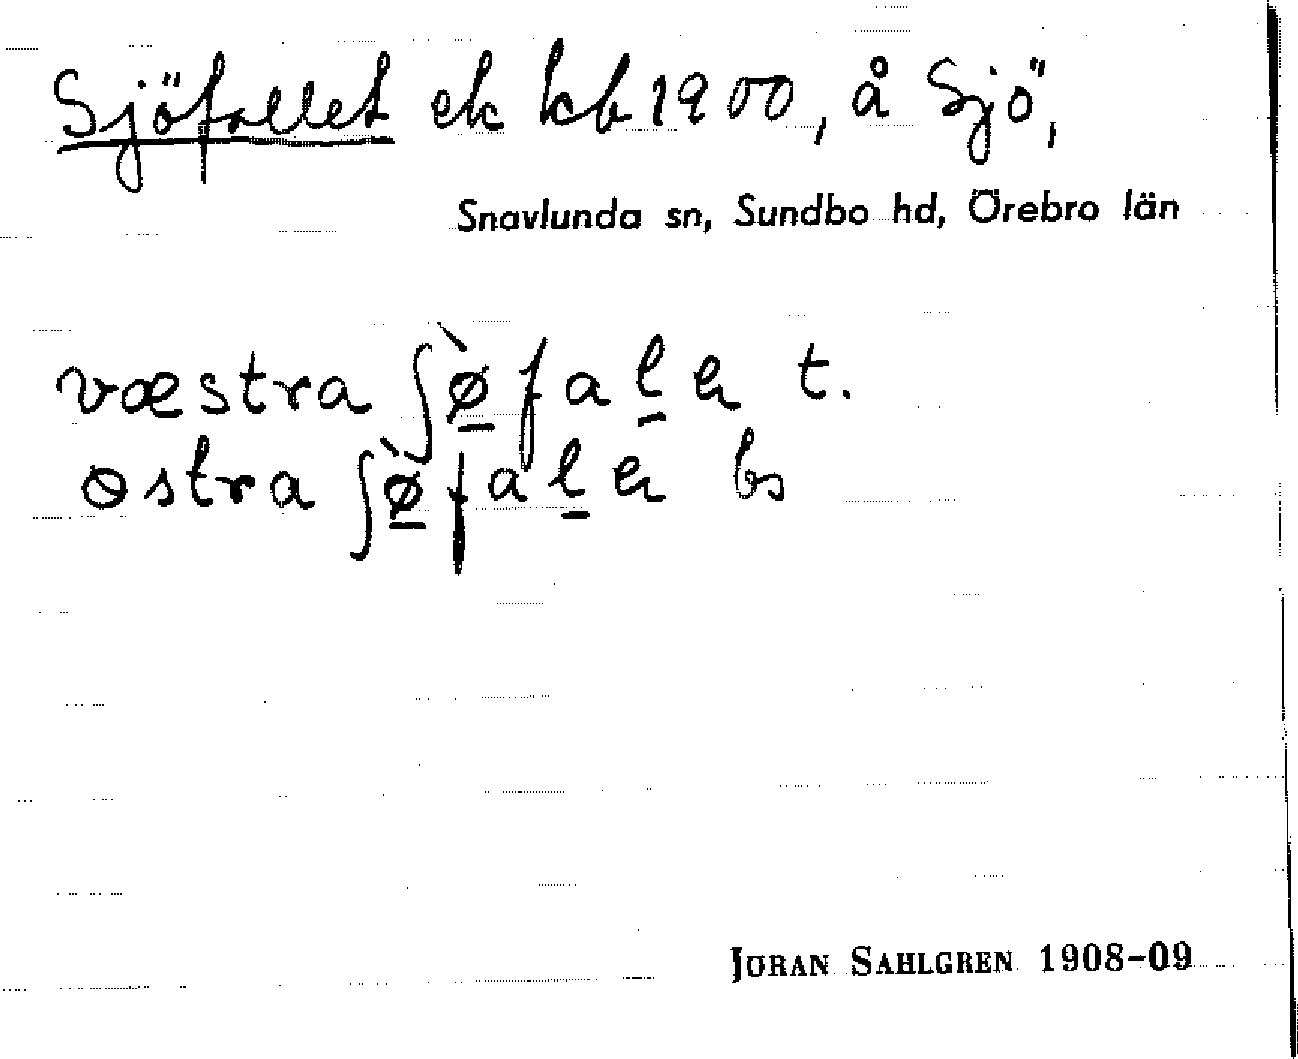 Sjöfallet ek kb 1900, å Sjö,
Snavlunda sn, Sundbo hd, Örebro län
væstra ʃø̠̀fal̠ət t.
østra ʃø̠̀fal̠ət bs
JÖRAN SAHLGREN 1908-09